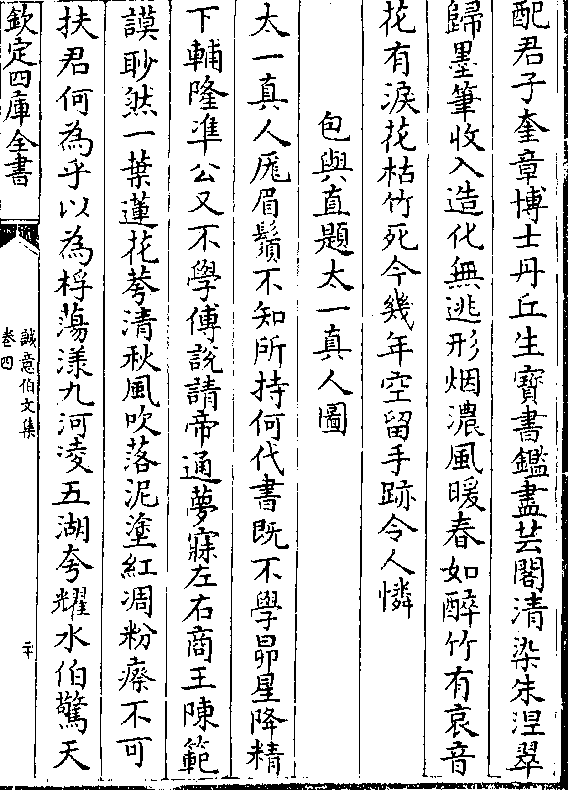 配君子奎章博士丹丘生寶書鑑盡芸閣清染朱涅翠
歸墨筆收入造化無逃形烟濃風暖春如醉竹有哀音
花有淚花枯竹死今幾年空留手跡令人憐
包與直題太一真人圖
太一真人厖眉鬚不知所持何代書既不學昴星降精
下輔隆準公又不學傅說請帝通夢寐左右商王陳範
謨眇然一葉蓮花萼清秋風吹落泥塗紅凋粉瘵不可
扶君何為乎以為桴蕩漾九河凌五湖夸耀水伯驚天
欽定四庫全書
誠意伯文集
卷四
二十